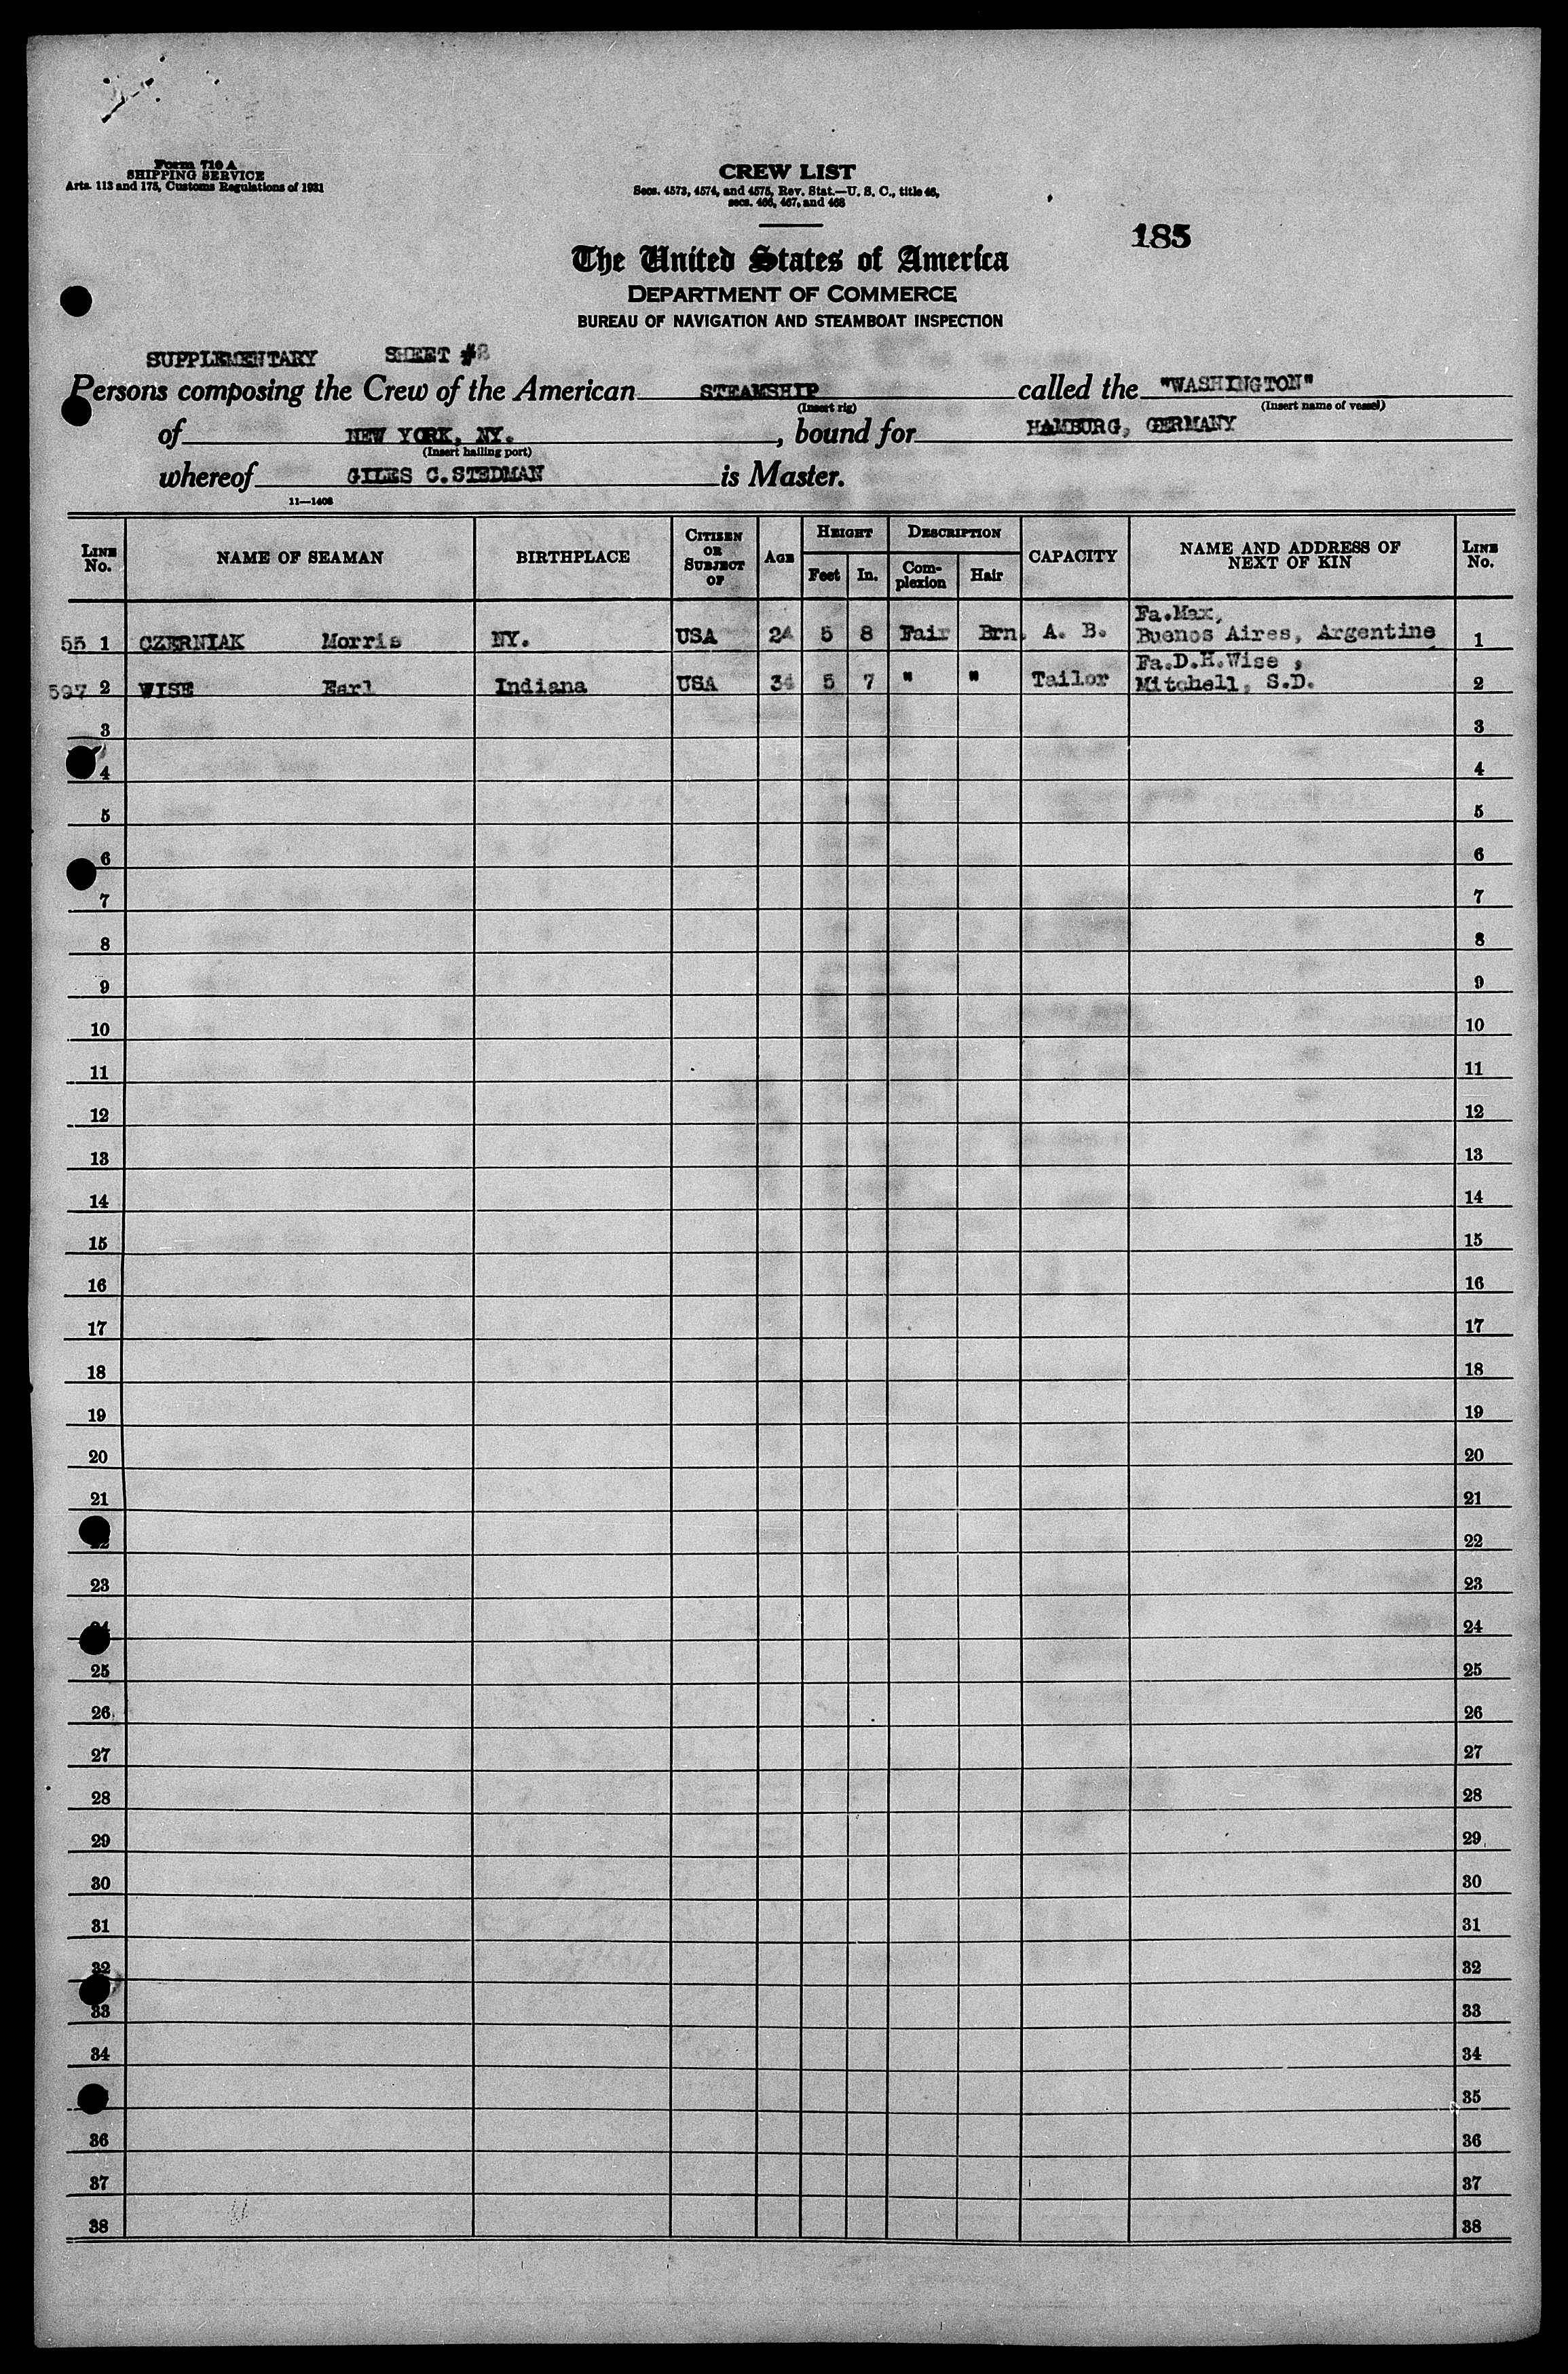 Form 710 A
SHIPPING SERVICE
Arts. 113 and 175, Customs Regulations of 1931
CREW LIST
Secs. 4573, 4574, and 4575, Rev. Stat.—U. S. C., title 46,
secs. 466, 467, and 468
185
The United States of America
DEPARTMENT OF COMMERCE
BUREAU OF NAVIGATION AND STEAMBOAT INSPECTION
SUPPLEMENTARY SHEET #2
Persons composing the Crew of the American STEAMSHIP called the "WASHINGTON"
(Insert rig) (Insert name of vessel)
of NEW YORK, NY. , bound for HAMBURG, GERMANY
(Insert hailing port)
whereof GILES C. STEDMAN is Master.
11—1408
LINE No. NAME OF SEAMAN BIRTHPLACE CITIZEN OR SUBJECT OF AGE HEIGHT Feet In. DESCRIPTION Complexion Hair CAPACITY NAME AND ADDRESS OF NEXT OF KIN LINE No.
Fa.Max,
55 1 CZERNIAK Morris NY. USA 24 5 8 Fair Brn. A. B. Buenos Aires, Argentine 1
Fa.D.H.Wise ,
597 2 WISE Earl Indiana USA 34 5 7 " " Tailor Mitchell, S.D. 2
3 3
4 4
5 5
6 6
7 7
8 8
9 9
10 10
11 11
12 12
13 13
14 14
15 15
16 16
17 17
18 18
19 19
20 20
21 21
22 22
23 23
24 24
25 25
26 26
27 27
28 28
29 29
30 30
31 31
32 32
33 33
34 34
35
36 36
37 37
38 38